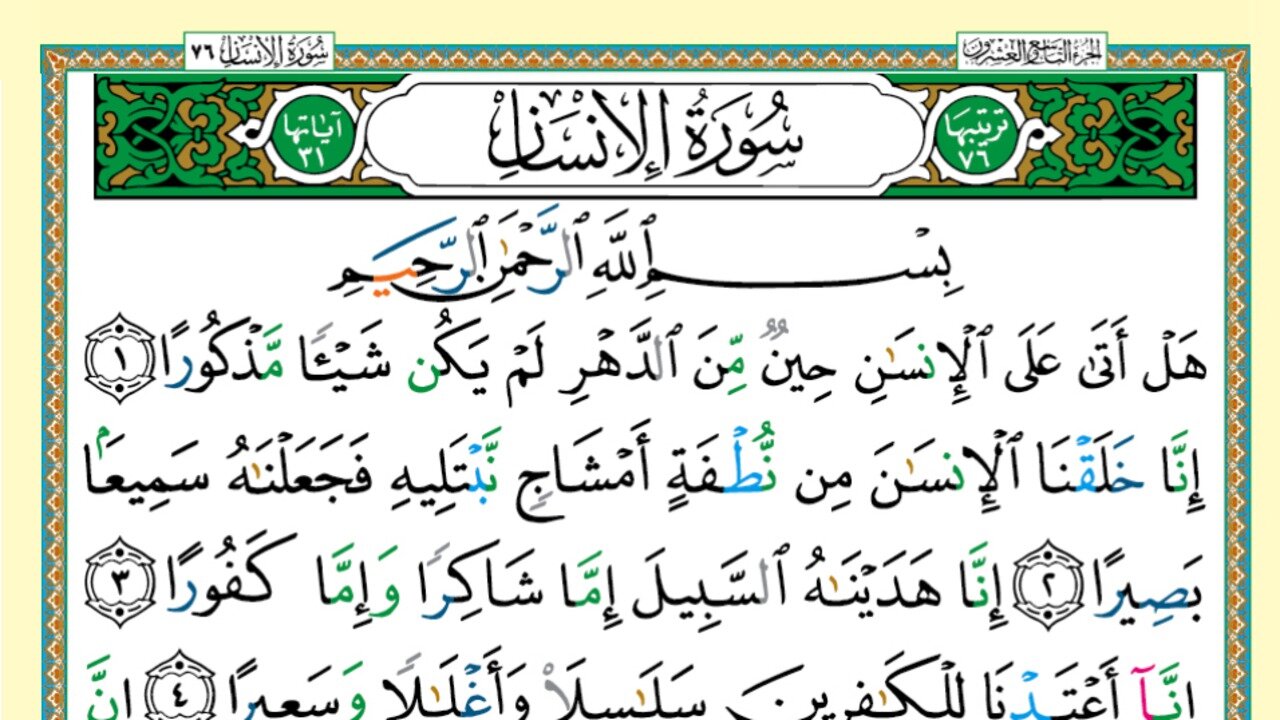 الجزء التاسع والعشرون
سورة الإنسان ٧٦
ترتيبها ٧٦
سُورَةُ الإِنسَانِ
آياتها ٣١
بِسْمِ ٱللَّهِ ٱلرَّحْمَٰنِ ٱلرَّحِيمِ
هَلْ أَتَىٰ عَلَى ٱلْإِنسَٰنِ حِينٌ مِّنَ ٱلدَّهْرِ لَمْ يَكُن شَيْـًٔا مَّذْكُورًا ١
إِنَّا خَلَقْنَا ٱلْإِنسَٰنَ مِن نُّطْفَةٍ أَمْشَاجٍ نَّبْتَلِيهِ فَجَعَلْنَٰهُ سَمِيعَۢا
بَصِيرًا ٢ إِنَّا هَدَيْنَٰهُ ٱلسَّبِيلَ إِمَّا شَاكِرًا وَإِمَّا كَفُورًا ٣
إِنَّآ أَعْتَدْنَا لِلْكَٰفِرِينَ سَلَٰسِلَا۟ وَأَغْلَٰلًا وَسَعِيرًا ٤ إِنَّ